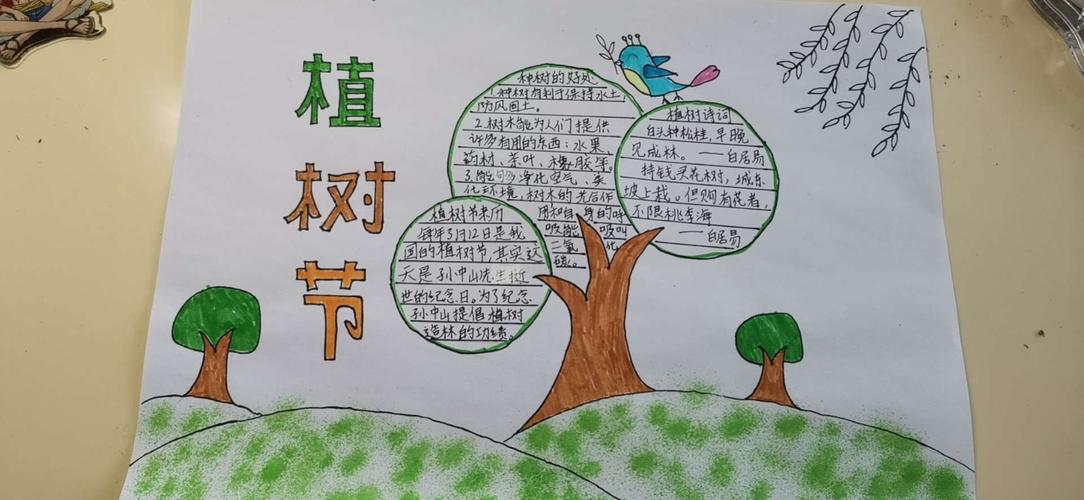 植
树
节
种树的好处
1.种树有利于保持水土,
防风固土。
2.树木能为人们提供
许多有用的东西:水果、
药材、茶叶、橡胶等。
3.能够净化空气、美
化环境,树木的光合作
用和自身的呼
吸能吸叫
二氧化
碳。
植树诗词
白头种松桂,早晚
见成林。——白居易
持钱买花树,城东
坡上栽。但购有花者,
不限桃李海
——白居易
植树节来历
每年3月12日是我
国的植树节,其实这
天是孙中山先生逝
世的纪念日。为了纪念
孙中山提倡植树
造林的功绩。